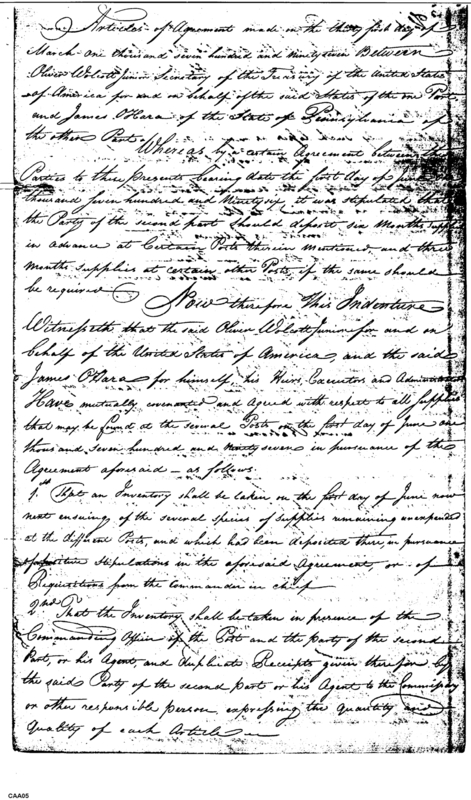 Articles of Agreement made on the thirty first day of
March one thousand seven hundred and ninety seven Between
Oliver Wolcott Junior Secretary of the Treasury of the United States
of America for and on behalf of the said States of the one Part
and James O'Hara of the State of Pennsylvania of
the other Part
Whereas by a certain Agreement between the
Parties to these presents bearing date the first day of
thousand seven hundred and Ninety six it was stipulated that
the Party of the second part should deposit six Months supplies
in advance at Certain Posts therein mentioned and three
Months supplies at certain other Posts, if the same should
be required
Now therefore This Indenture
Witnesseth that the said Oliver Wolcott Junior for and on
behalf of the United States of America, and the said
James O'Hara for himself, his Heirs, Executors and Administrators
Have mutually covenanted and agreed with respect to all supplies
that may be found at the several Posts on the first day of June one
thousand seven hundred and ninety seven in pursuance of the
Agreement aforesaid — as follows.
1.st That an Inventory shall be taken on the first day of June now
next ensuing of the several species of supplies remaining unexpended
at the different Posts, and which had been deposited there in pursuance
of stipulations in the aforesaid Agreement, or of
Requisitions from the Commander in chief
2nd That the Inventory shall be taken in presence of the
Commanding Officer of the Post and the Party of the second
Part, or his Agent, and duplicate Receipts given therefor by
the said Party of the second part or his Agent to the Commissary
or other responsible person, expressing the quantity and
Quality of each Article
CAA05